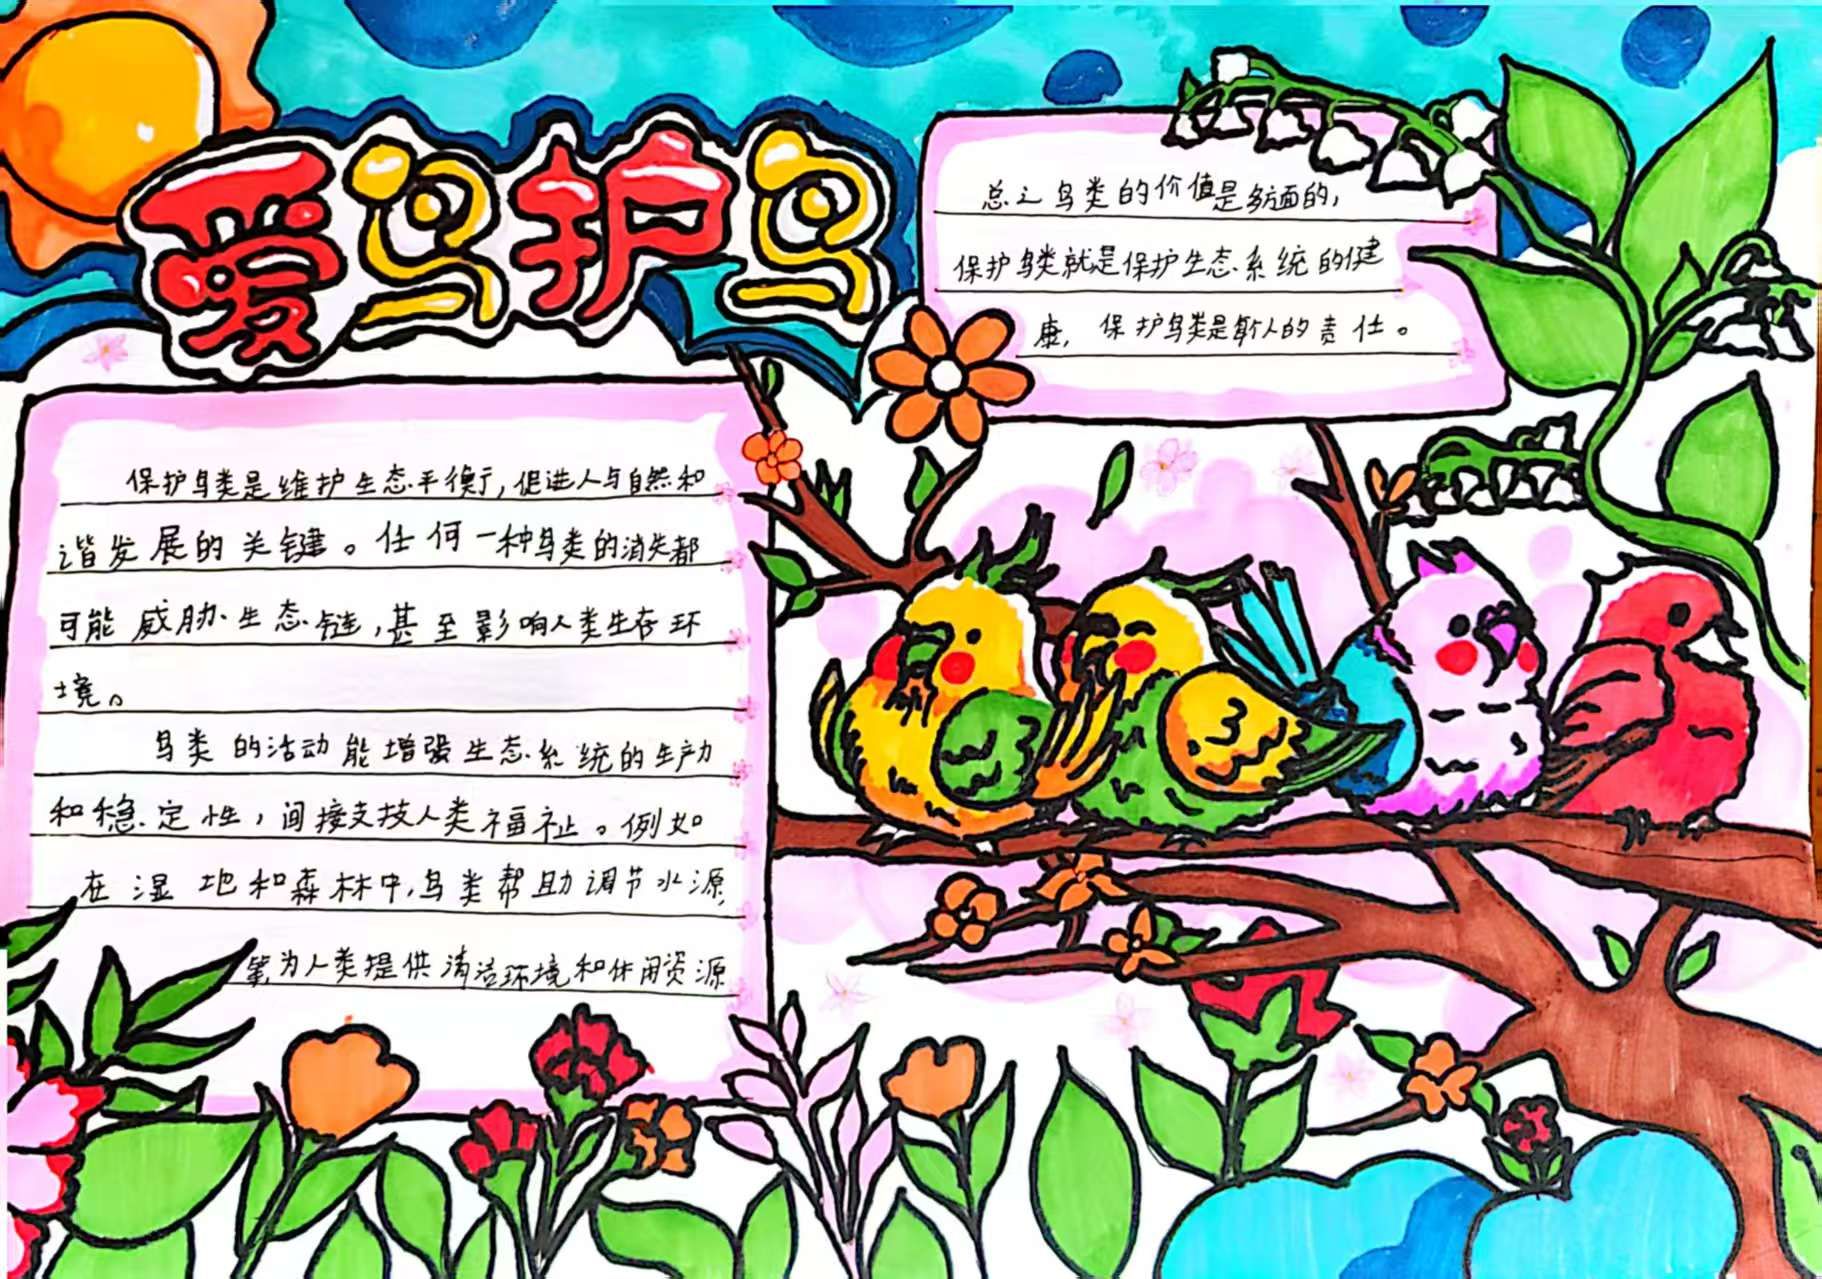 爱鸟护鸟
总之鸟类的价值是多方面的，
保护鸟类就是保护生态系统的健
康，保护鸟类是每个人的责任。
保护鸟类是维护生态平衡，促进人与自然和
谐发展的关键。任何一种鸟类的消失都
可能威胁生态链，甚至影响人类生存环
境。
鸟类的活动能增强生态系统的生产力
和稳定性，间接支持人类福祉。例如
在湿地和森林中，鸟类帮助调节水源，
为人类提供清洁环境和休闲资源